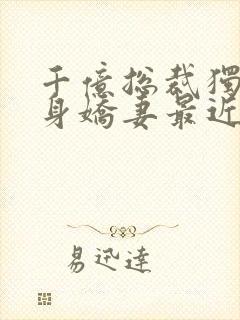 千億總裁獨
身嬌妻最近
易迅達